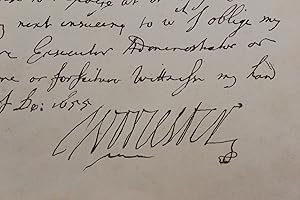 next insueing to w
oblige my
Executor Administrator or
or forfeiture Wittness my hand
1655
Worcester